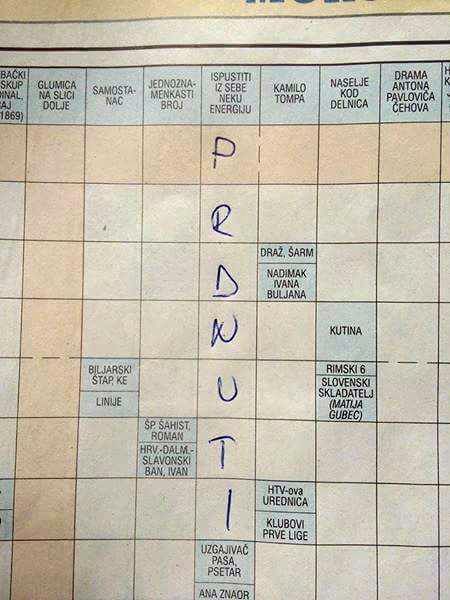 BAČKI
SKUP
DINAL,
RAJ
1869)
GLUMICA
NA SLICI
DOLJE
SAMOSTA-
NAC
JEDNOZNA-
MENKASTI
BROJ
ISPUSTITI
IZ SEBE
NEKU
ENERGIJU
KAMILO
TOMPA
NASELJE
KOD
DELNICA
DRAMA
ANTONA
PAVLOVIĆA
ČEHOVA
P
R
D
N
U
T
I
DRAŽ, ŠARM
NADIMAK
IVANA
BULJANA
KUTINA
BILJARSKI
ŠTAP, KE
LINIJE
RIMSKI 6
SLOVENSKI
SKLADATELJ
(MATIJA
GUBEC)
ŠP. ŠAHIST,
ROMAN
HRV.-DALM.-
SLAVONSKI
BAN, IVAN
HTV-ova
UREDNICA
KLUBOVI
PRVE LIGE
UZGAJIVAČ
PASA,
PSETAR
ANA ZNAOR